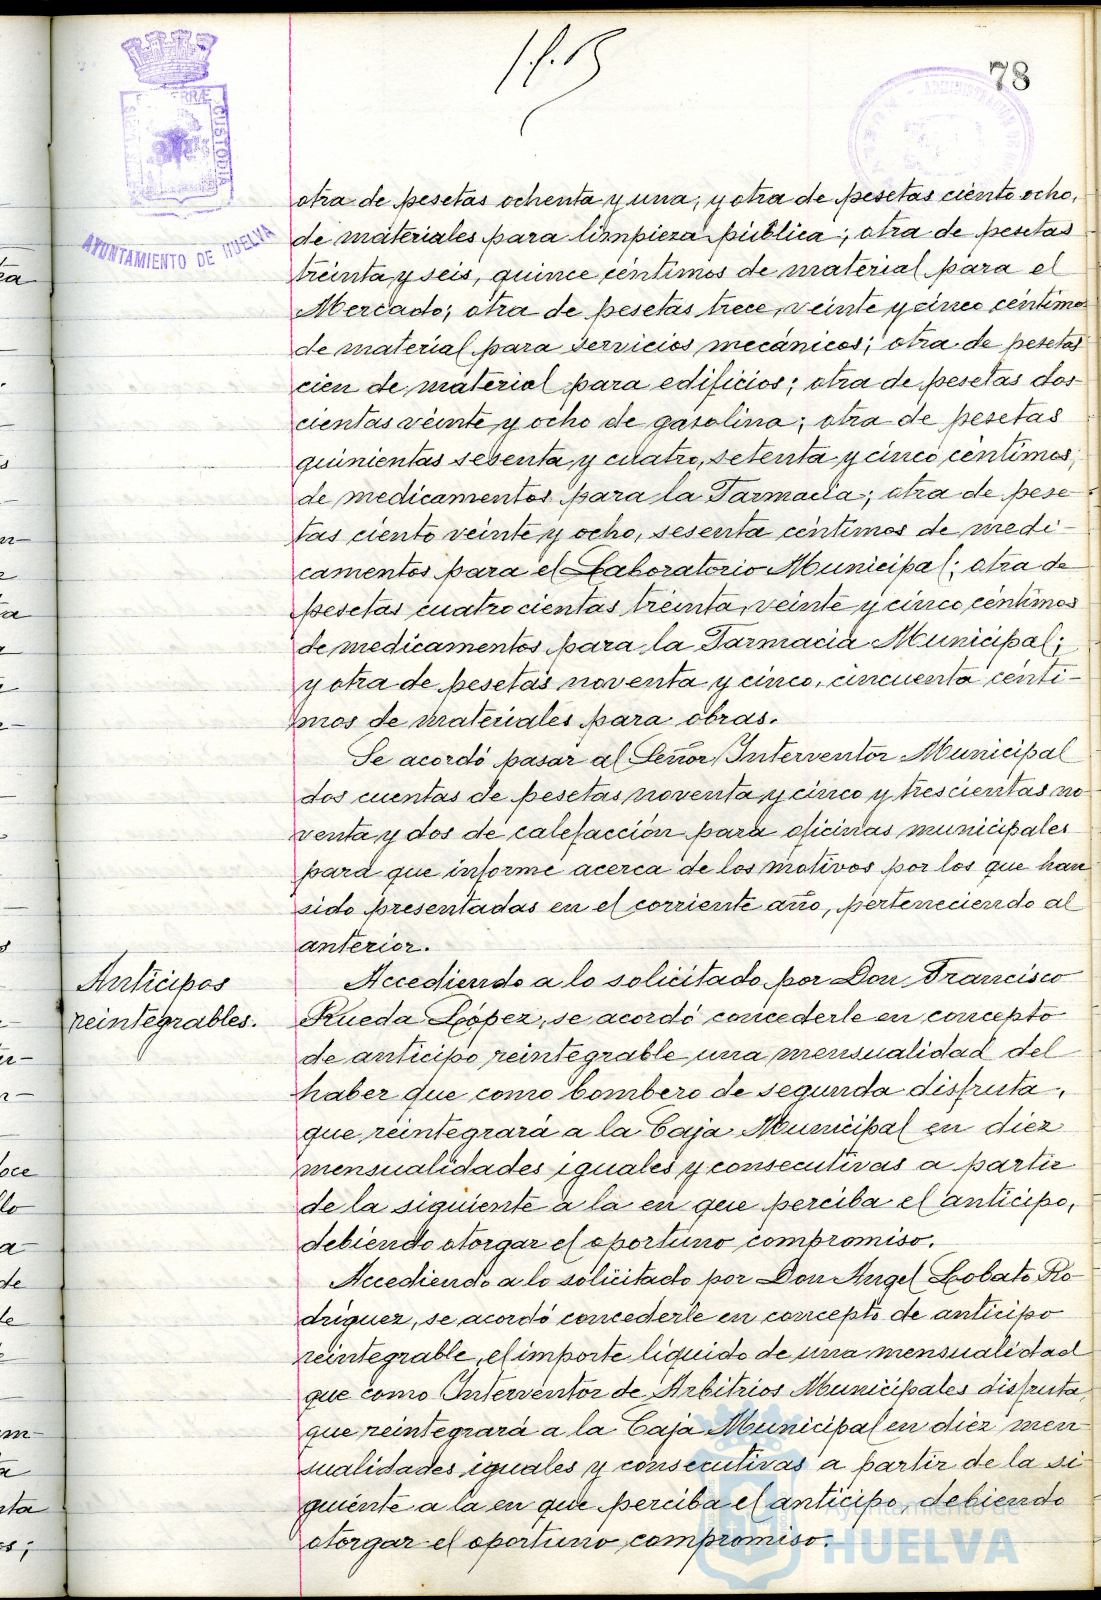 78
PORTUS MARIS ET TERRÆ CUSTODIA
AYUNTAMIENTO DE HUELVA
otra de pesetas ochenta y una; y otra de pesetas ciento ocho,
de materiales para limpieza pública; otra de pesetas
treinta y seis, quince céntimos de material para el
Mercado; otra de pesetas trece, veinte y cinco céntimos
de material para servicios mecánicos; otra de pesetas
cien de material para edificios; otra de pesetas dos-
cientas veinte y ocho de gasolina; otra de pesetas
quinientas sesenta y cuatro, setenta y cinco céntimos,
de medicamentos para la Farmacia; otra de pese-
tas ciento veinte y ocho, sesenta céntimos de medi-
camentos para el Laboratorio Municipal; otra de
pesetas cuatrocientas treinta, veinte y cinco céntimos
de medicamentos para la Farmacia Municipal;
y otra de pesetas noventa y cinco, cincuenta cénti-
mos de materiales para obras.
Se acordó pasar al Señor Interventor Municipal
dos cuentas de pesetas noventa y cinco y trescientas no
venta y dos de calefacción para oficinas municipales
para que informe acerca de los motivos por los que han
sido presentadas en el corriente año, perteneciendo al
anterior.
Anticipos
reintegrables.
Accediendo a lo solicitado por Don Francisco
Rueda López, se acordó concederle en concepto
de anticipo reintegrable una mensualidad del
haber que como bombero de segunda disfruta,
que reintegrará a la Caja Municipal en diez
mensualidades iguales y consecutivas a partir
de la siguiente a la en que perciba el anticipo,
debiendo otorgar el oportuno compromiso.
Accediendo a lo solicitado por Don Angel Lobato Ro-
dríguez, se acordó concederle en concepto de anticipo
reintegrable, el importe líquido de una mensualidad
que como Interventor de Arbitrios Municipales disfruta,
que reintegrará a la Caja Municipal en diez men
sualidades iguales y consecutivas a partir de la si
guiente a la en que perciba el anticipo, debiendo
otorgar el oportuno compromiso.
Ayuntamiento de
HUELVA